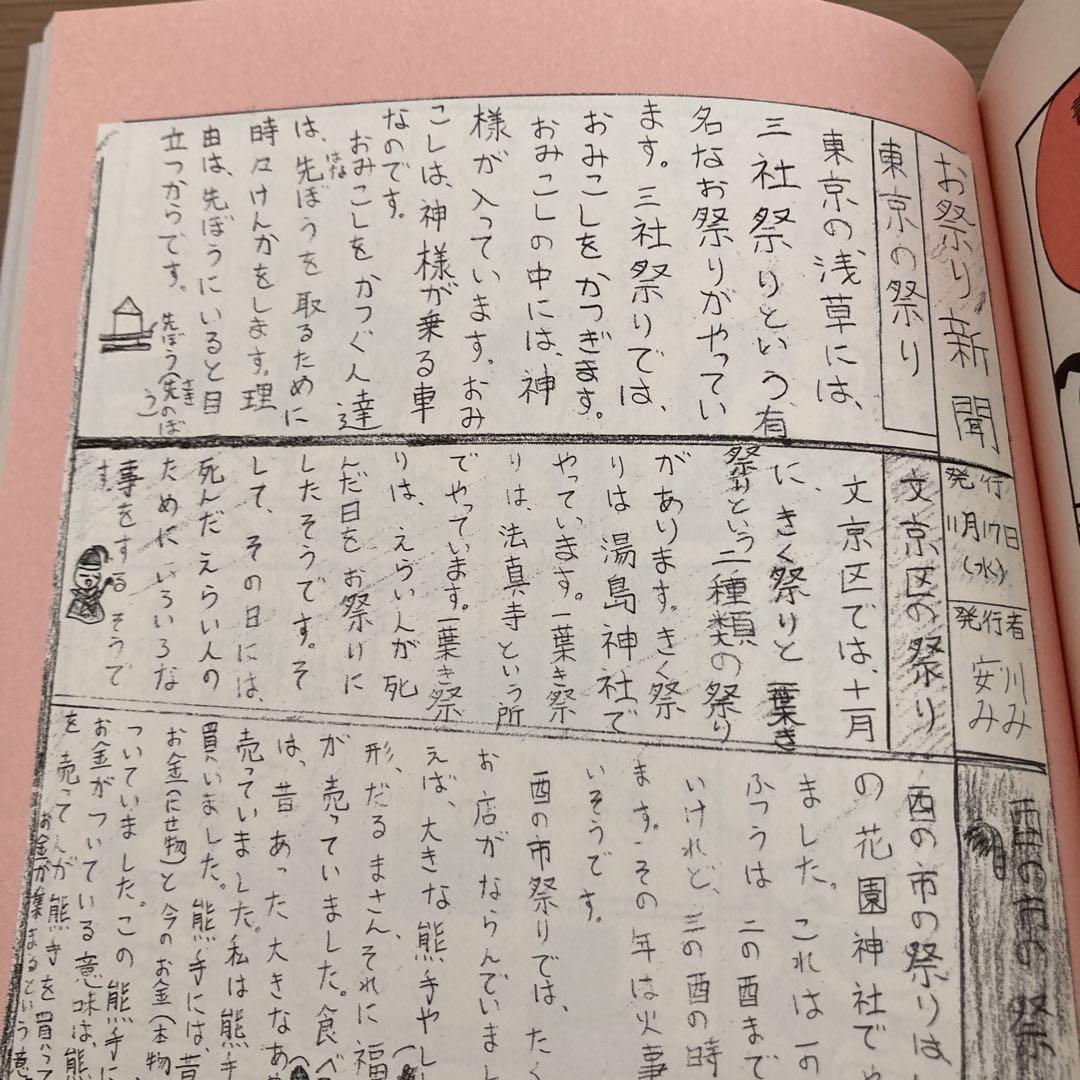 お祭り新聞
発行
11月17日
(水)
発行者
川み
安み
東京の祭り
東京の浅草には、
三社祭りという有
名なお祭りがやってい
ます。三社祭りでは、
おみこしをかつぎます。
おみこしの中には、神
様が入っています。おみ
こしは、神様が乗る車
なのです。
おみこしをかつぐ人達
は、先ぼうを取るために
はな
時々けんかをします。理
由は、先ぼうにいると目
立つからです。
先ぼう(先のぼ
さき
う)
文京区の祭り
文京区では、十一月
に、きく祭りと一葉き
祭りという二種類の祭り
があります。きく祭
りは湯島神社で
やっています。一葉き祭
りは、法真寺という所
でやっています。一葉き祭
りは、えらい人が死
んだ日をお祭りに
したそうです。そ
して、その日には、
死んだえらい人の
ためにいろいろな
事をするそうで
す。
酉の市の祭
酉の市の祭りは、
の花園神社でや
ました。これは一の
ふつうは二の酉まで
いけれど、三の酉の時
ます。その年は火事
いそうです。
酉の市祭りでは、たく
お店がならんでいまし
えば、大きな熊手や
形、だるまさん、それに福
が売っていました。食べ
は、昔あった大きなあ
売っていました。私は熊手
買いました。熊手には、昔
お金(にせ物)と今のお金(本物
ついていました。この熊手に
お金がついている意味は、熊
を売って
が熊手を買って
お金が集まるという意